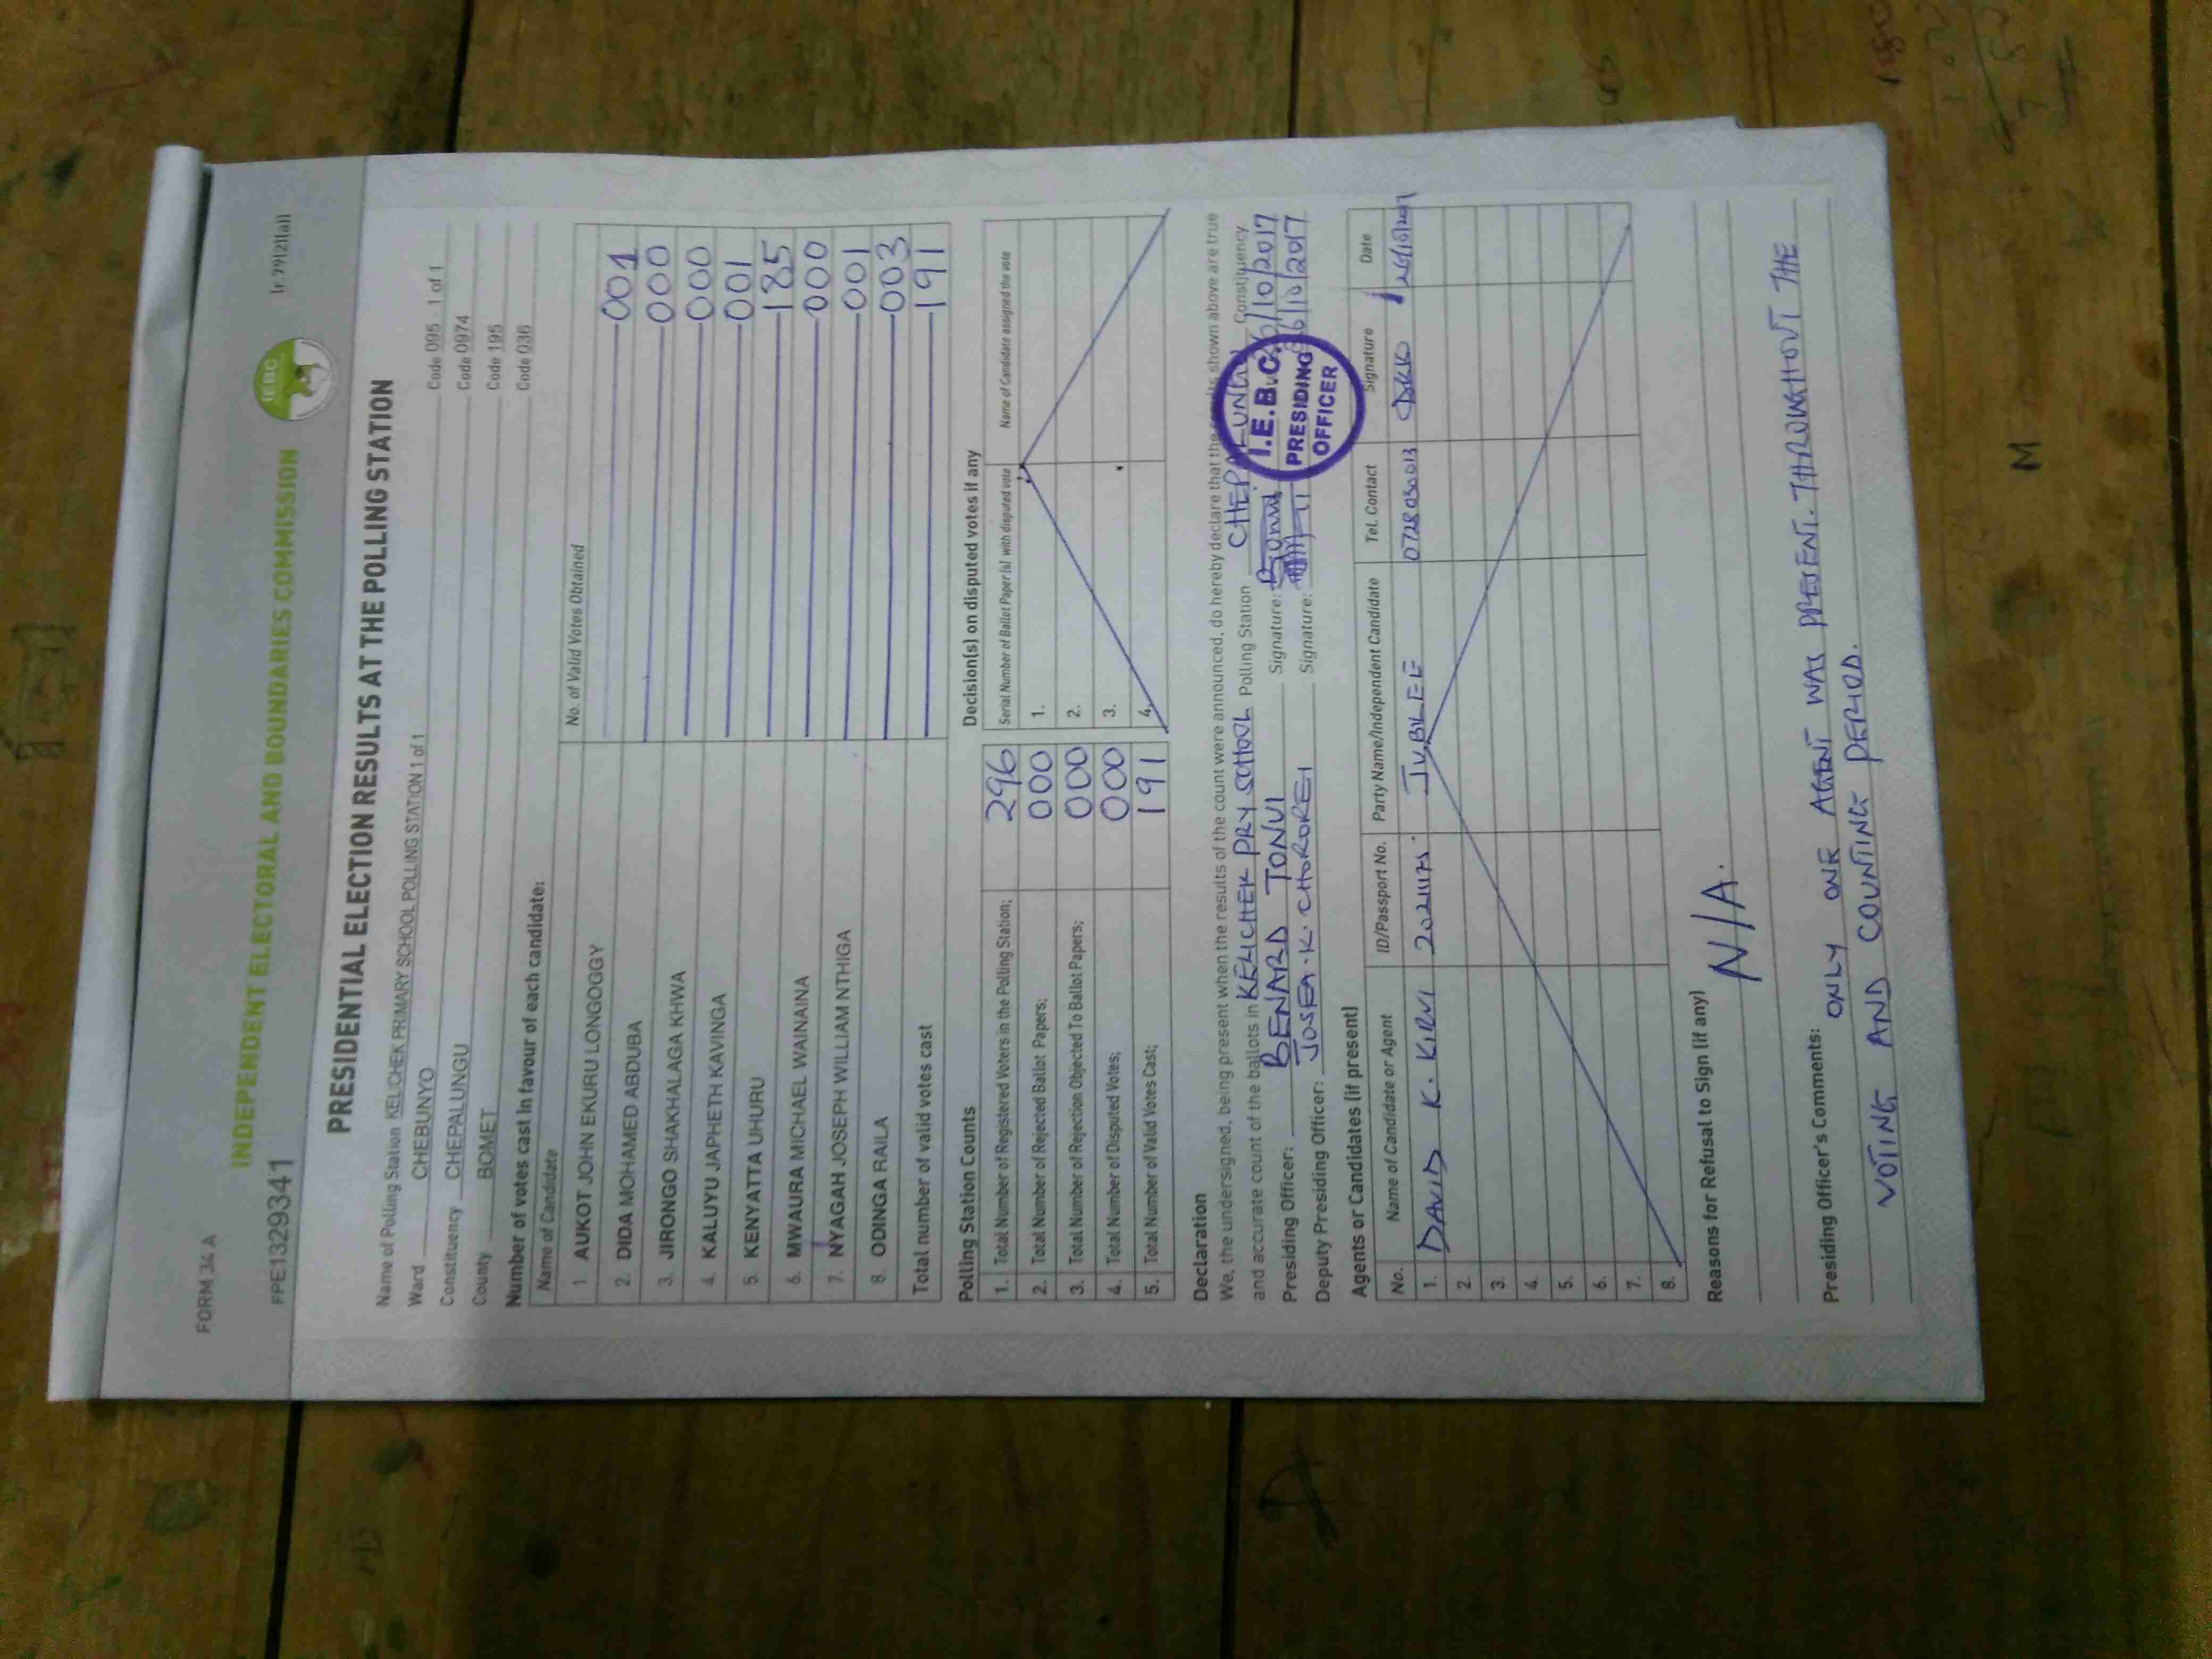 FORM 34 A
(r 79(2)(a))
FPE1329341
INDEPENDENT ELECTORAL AND BOUNDARIES COMMISSION
IEBC
PRESIDENTIAL ELECTION RESULTS AT THE POLLING STATION
Name of Polling Station KELICHEK PRIMARY SCHOOL POLLING STATION 1 of 1 Code 095 - 1 of 1
Ward CHEBUNYO Code 0974
Constituency CHEPALUNGU Code 195
County BOMET Code 036
Number of votes cast in favour of each candidate:
Name of Candidate No. of Valid Votes Obtained
1. AUKOT JOHN EKURU LONGOGGY 001
2. DIDA MOHAMED ABDUBA 000
3. JIRONGO SHAKHALAGA KHWA 000
4. KALUYU JAPHETH KAVINGA 001
5. KENYATTA UHURU 185
6. MWAURA MICHAEL WAINAINA 000
7. NYAGAH JOSEPH WILLIAM NTHIGA 001
8. ODINGA RAILA 003
Total number of valid votes cast 191
Polling Station Counts
1. Total Number of Registered Voters in the Polling Station; 296
2. Total Number of Rejected Ballot Papers; 000
3. Total Number of Rejection Objected To Ballot Papers; 000
4. Total Number of Disputed Votes; 000
5. Total Number of Valid Votes Cast; 191
Decision(s) on disputed votes if any
Serial Number of Ballot Paper (s) with disputed vote Name of Candidate assigned the vote
1.
2.
3.
4.
Declaration
We, the undersigned, being present when the results of the count were announced, do hereby declare that the results shown above are true
and accurate count of the ballots in KELICHEK PRY SCHOOL Polling Station CHEPALUNGU Constituency
Presiding Officer: BENARD TONUI Signature: 26/10/2017
Deputy Presiding Officer: JOSEA. K. CHOROREI Signature: 26/10/2017
I.E.B.C.
PRESIDING
OFFICER
Agents or Candidates (if present)
No. Name of Candidate or Agent ID/Passport No. Party Name/Independent Candidate Tel. Contact Signature Date
1. DAVID K. KIRUI JUBILEE 0728030013 26/10/2017
2.
3.
4.
5.
6.
7.
8.
Reasons for Refusal to Sign (if any)
N/A.
Presiding Officer's Comments: ONLY ONE AGENT WAS PRESENT. THROUGHOUT THE
VOTING AND COUNTING PERIOD.